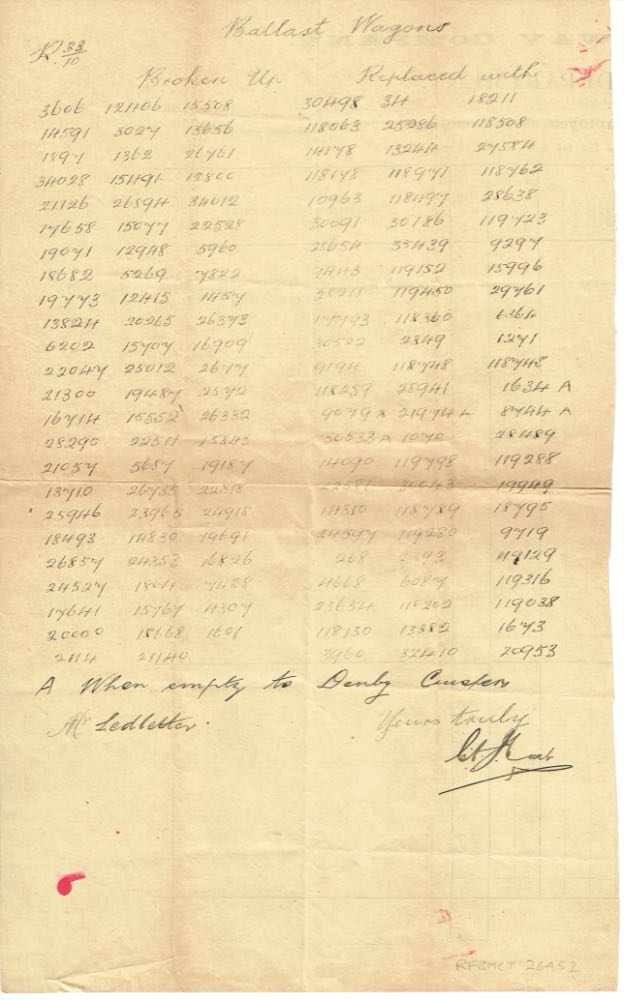 Ballast Wagons
R 33/10
Broken Up Replaced with
3606 121106 15508 30498 314 18211
14591 3027 13656 118063 25986 118508
1897 1362 26761 14178 13244 27584
34028 15491 12800 118178 118971 118762
21126 26894 34012 10963 118497 28638
17658 15077 22528 30091 30186 119723
19071 12948 5960 28654 35439 9297
18682 5269 7822 119152 15996
19773 12415 1457 119450 29761
13824 20265 26373 118360 6364
6202 15707 16909 2349 1271
22047 25012 2677 9194 118748 118748
21300 19487 2572 118259 28941 1634 A
16714 15552 26332 9079 A 21974 A 8744 A
28290 22511 15843 30533 A 1070 28489
21057 5687 19187 14090 119798 119288
13710 26735 30043 19949
25946 23965 24918 111310 118789 18795
18493 14830 19691 24597 119280 9719
26857 24353 16826 268 2393 119129
24527 1804 7488 4668 6087 119316
17641 15767 4307 23654 118202 119038
20000 18668 1601 118130 13382 1673
2114 21140 3960 32410 20953
A When empty to Denby
Mr Ledbetter. Yours truly
RFBMCT 26A52